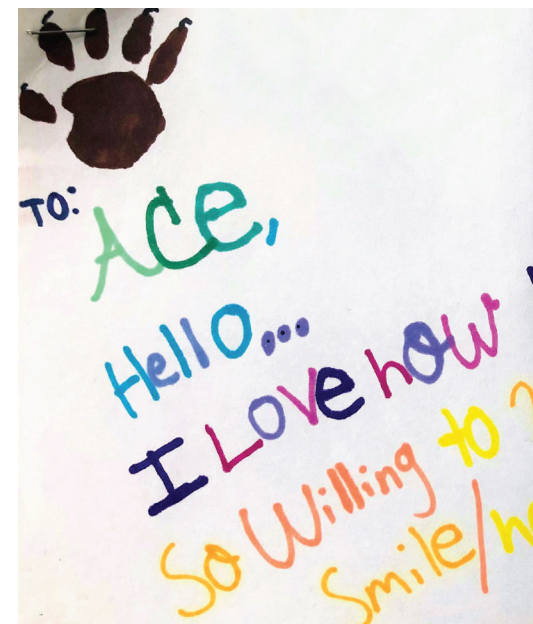 TO: ACe,
Hello...
I Love how
So Willing to
Smile/